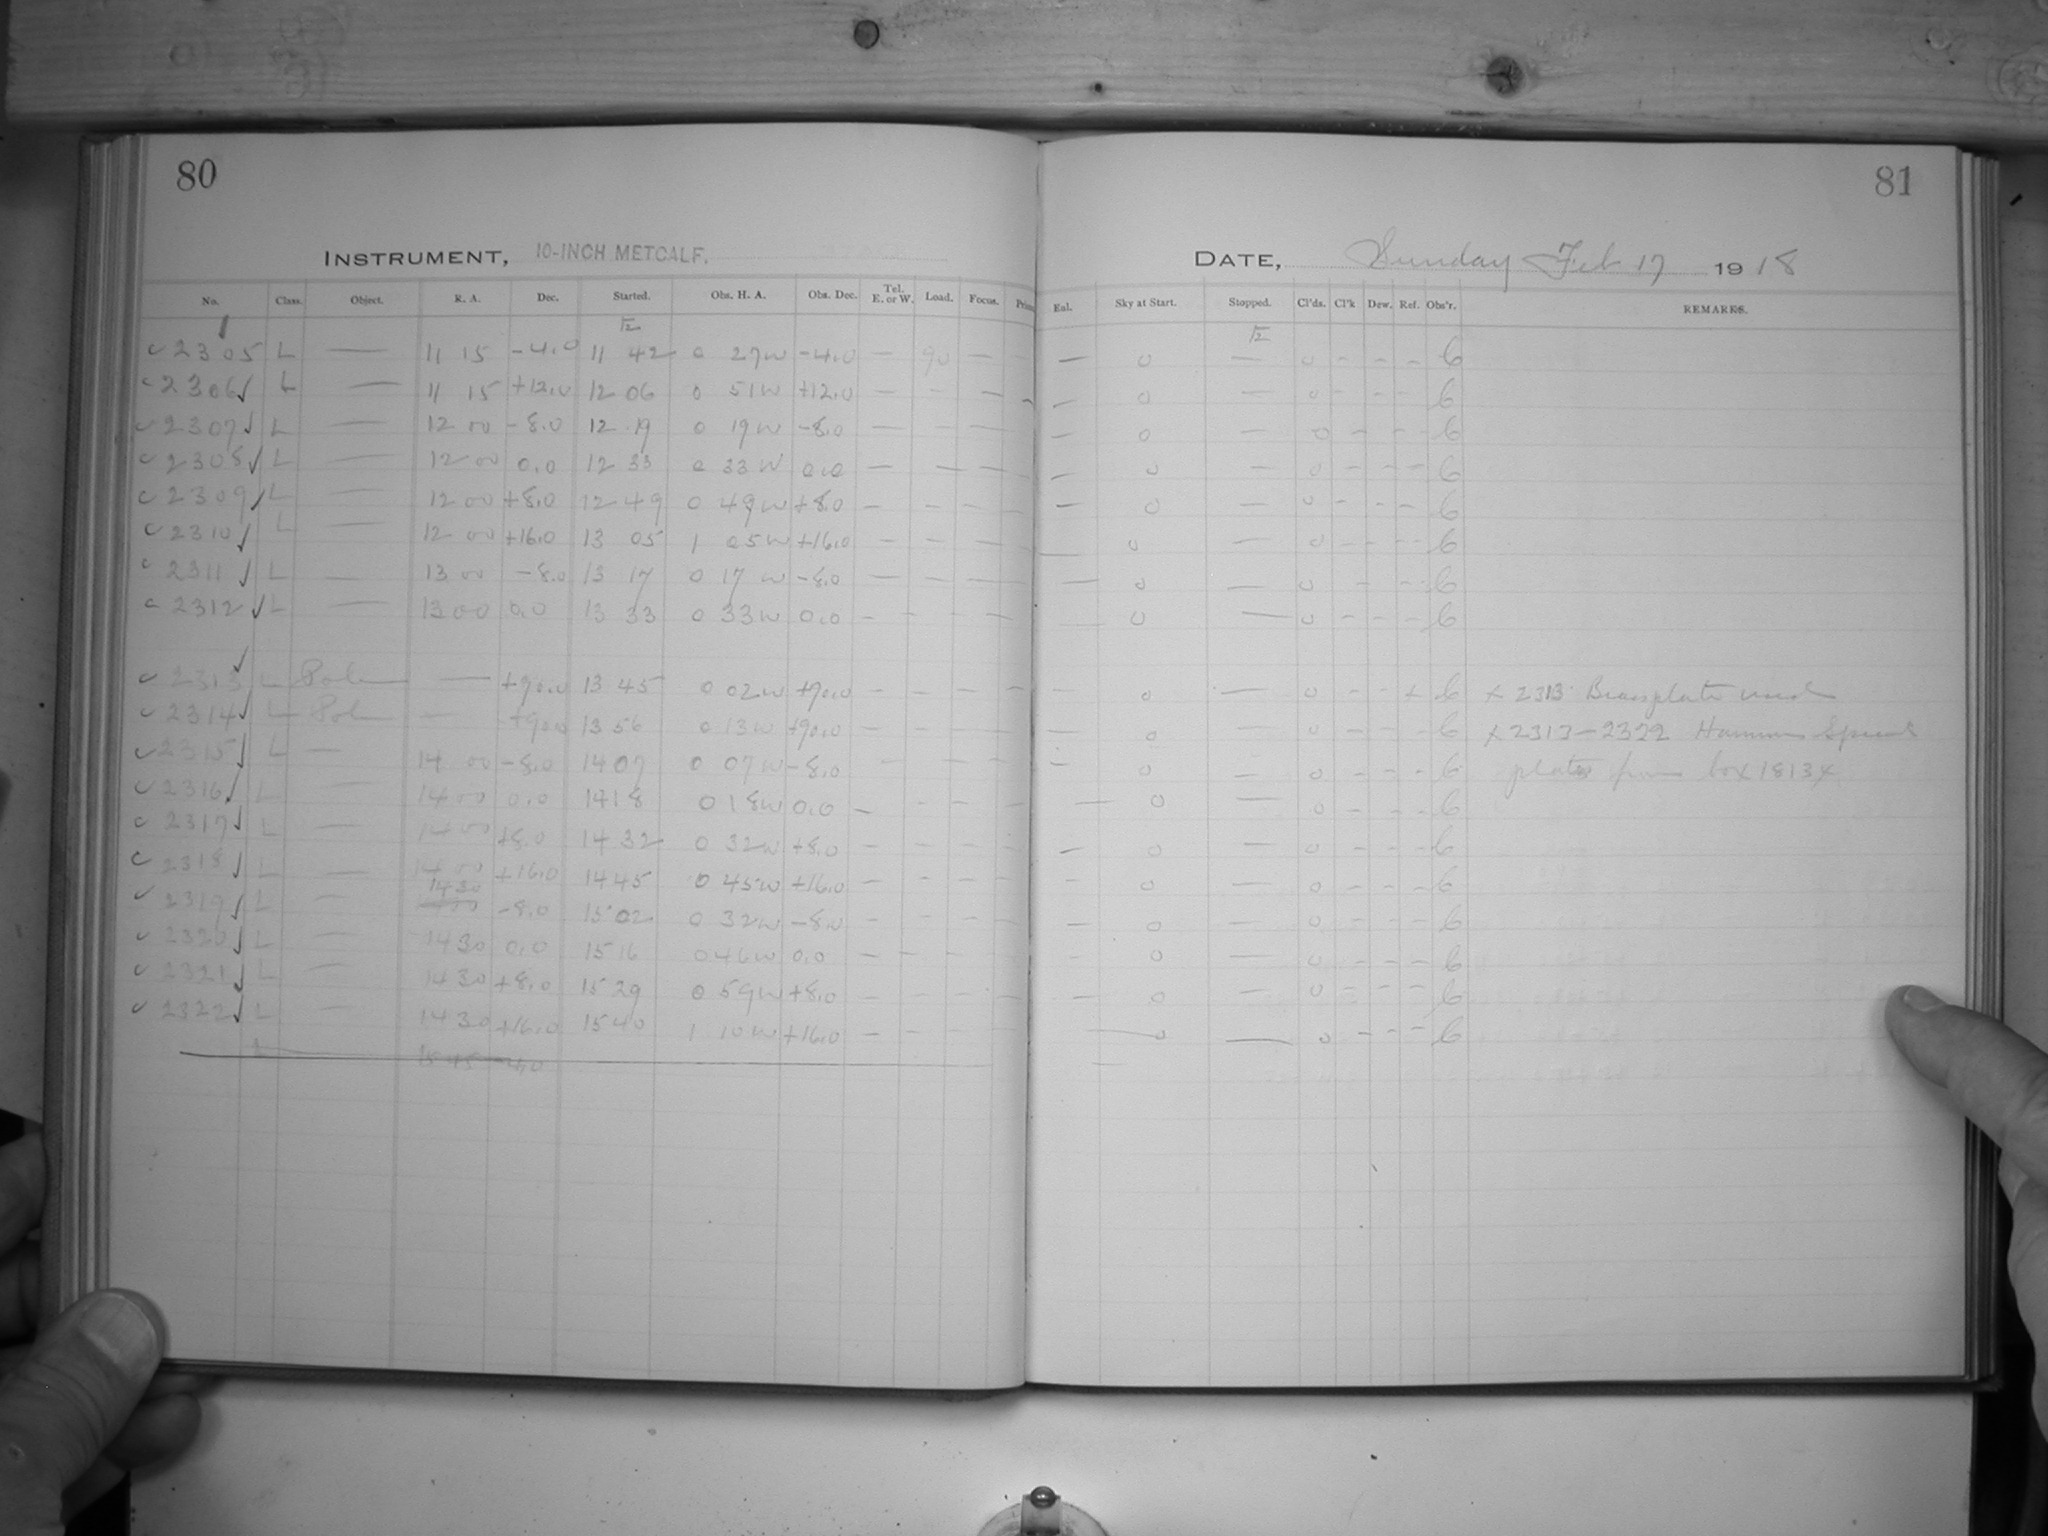 80
INSTRUMENT, 10-INCH METCALF.
No. Class. Object. R. A. Dec. Started. Obs. H. A. Obs. Dec. Tel. E. or W. Load. Focus.
12
c 2305 L — 11 15 -4.0 11 42 0 27W -4.0 — 90
c 2306 L — 11 15 +12.0 12 06 0 51W +12.0 — — —
c 2307 L — 12 00 -8.0 12 19 0 19W -8.0 — — —
c 2308 L — 12 00 0.0 12 33 0 33W 0.0 — — —
c 2309 L — 12 00 +8.0 12 49 0 49W +8.0 — — —
c 2310 L — 12 00 +16.0 13 05 1 05W +16.0 — — —
c 2311 L — 13 00 -8.0 13 17 0 17W -8.0 — — —
c 2312 L — 13 00 0.0 13 33 0 33W 0.0 — — —
c 2313 L Pole — +90.0 13 45 0 02W +90.0 — — —
c 2314 L Pole — +90.0 13 56 0 13W +90.0 — — —
c 2315 L — 14 00 -8.0 14 07 0 07W -8.0 — — —
c 2316 L 14 00 0.0 14 18 0 18W 0.0 — — —
c 2317 L — 14 00 +8.0 14 32 0 32W +8.0 — — —
c 2318 L — 14 00 +16.0 14 45 0 45W +16.0 — — —
c 2319 L — 14 30 -8.0 15 02 0 32W -8.0 — — —
c 2320 L — 14 30 0.0 15 16 0 46W 0.0 — — —
c 2321 L — 14 30 +8.0 15 29 0 59W +8.0 — — —
c 2322 L — 14 30 +16.0 15 40 1 10W +16.0 — —
L 15 45 -4.0
81
DATE, Sunday Feb 17 1918
Enl. Sky at Start. Stopped. Cl'ds. Cl'k Dew. Ref. Obs'r. REMARKS.
12
— 0 — 0 — — — 6
— 0 — 0 — — — 6
— 0 — 0 — — — 6
— 0 — 0 — — — 6
— 0 — 0 — — — 6
— 0 — 0 — — — 6
— 0 — 0 — — — 6
— 0 — 0 — — — 6
— 0 — 0 — — + 6 x 2313 Brassplate used
— 0 — 0 — — — 6 x 2313-2322 Hammer Speed
— 0 — 0 — — — 6 plates from box 1813x
— 0 — 0 — — — 6
— 0 — 0 — — — 6
— 0 — 0 — — — 6
— 0 — 0 — — — 6
— 0 — 0 — — — 6
— 0 — 0 — — — 6
— 0 — 0 — — — 6